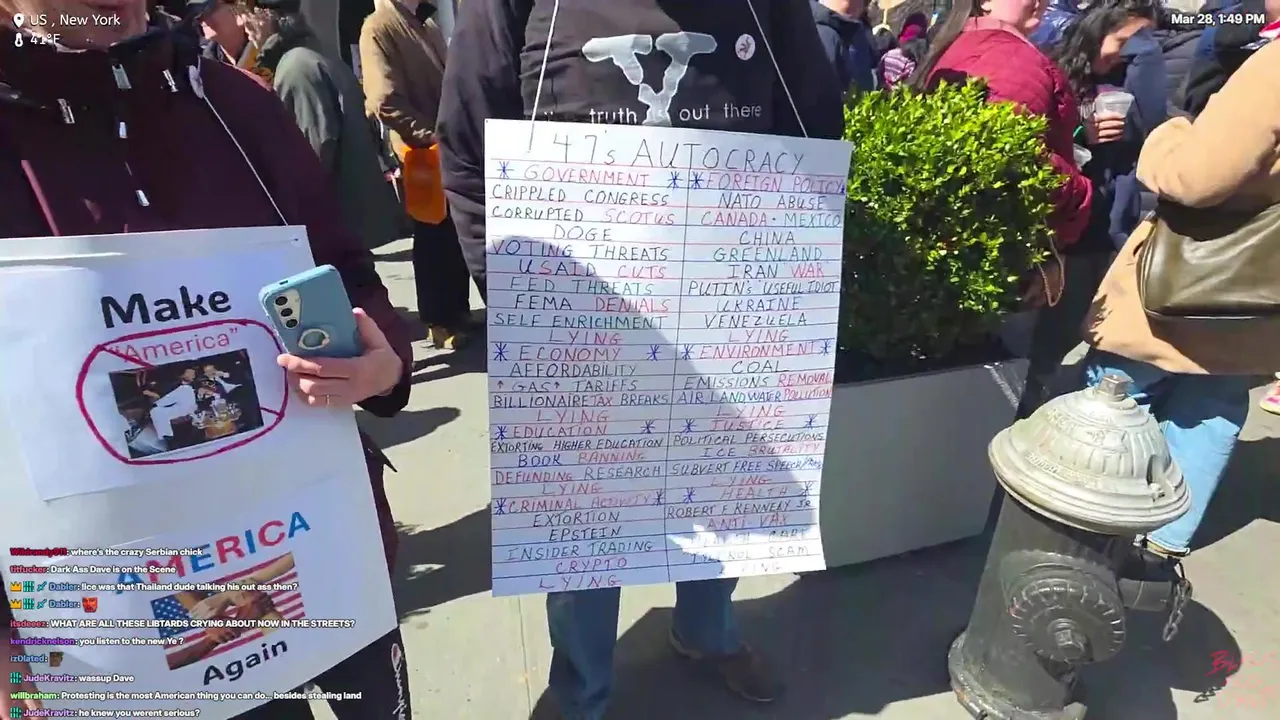 US , New York
41°F
Mar 28, 1:49 PM
truth
out there
'47's AUTOCRACY
* GOVERNMENT *
CRIPPLED CONGRESS
CORRUPTED SCOTUS
DOGE
VOTING THREATS
USAID CUTS
FED THREATS
FEMA DENIALS
SELF ENRICHMENT
LYING
* ECONOMY *
AFFORDABILITY
↑GAS↑ TARIFFS
BILLIONAIRE TAX BREAKS
LYING
* EDUCATION *
EXTORTING HIGHER EDUCATION
BOOK BANNING
DEFUNDING RESEARCH
LYING
* CRIMINAL ACTIVITY *
EXTORTION
EPSTEIN
INSIDER TRADING
CRYPTO
LYING
* FOREIGN POLICY *
NATO ABUSE
CANADA • MEXICO
CHINA
GREENLAND
IRAN WAR
PUTIN'S "USEFUL IDIOT"
UKRAINE
VENEZUELA
LYING
* ENVIRONMENT *
COAL
EMISSIONS REMOVAL
AIR LAND WATER POLLUTION
LYING
* JUSTICE *
POLITICAL PERSECUTIONS
ICE BRUTALITY
SUBVERT FREE SPEECH
LYING
* HEALTH *
ROBERT F KENNEDY JR
ANTI VAX
SCAM
Make
"America"
AMERICA
Again
where's the crazy Serbian chick
titfucker: Dark Ass Dave is on the Scene
Dabler: Iice was that Thailand dude talking his out ass then?
Dabler:
itsdeeez: WHAT ARE ALL THESE LIBTARDS CRYING ABOUT NOW IN THE STREETS?
kendricknelson: you listen to the new Ye ?
iz0lated:
JudeKravitz: wassup Dave
willbraham: Protesting is the most American thing you can do... besides stealing land
JudeKravitz: he knew you werent serious?